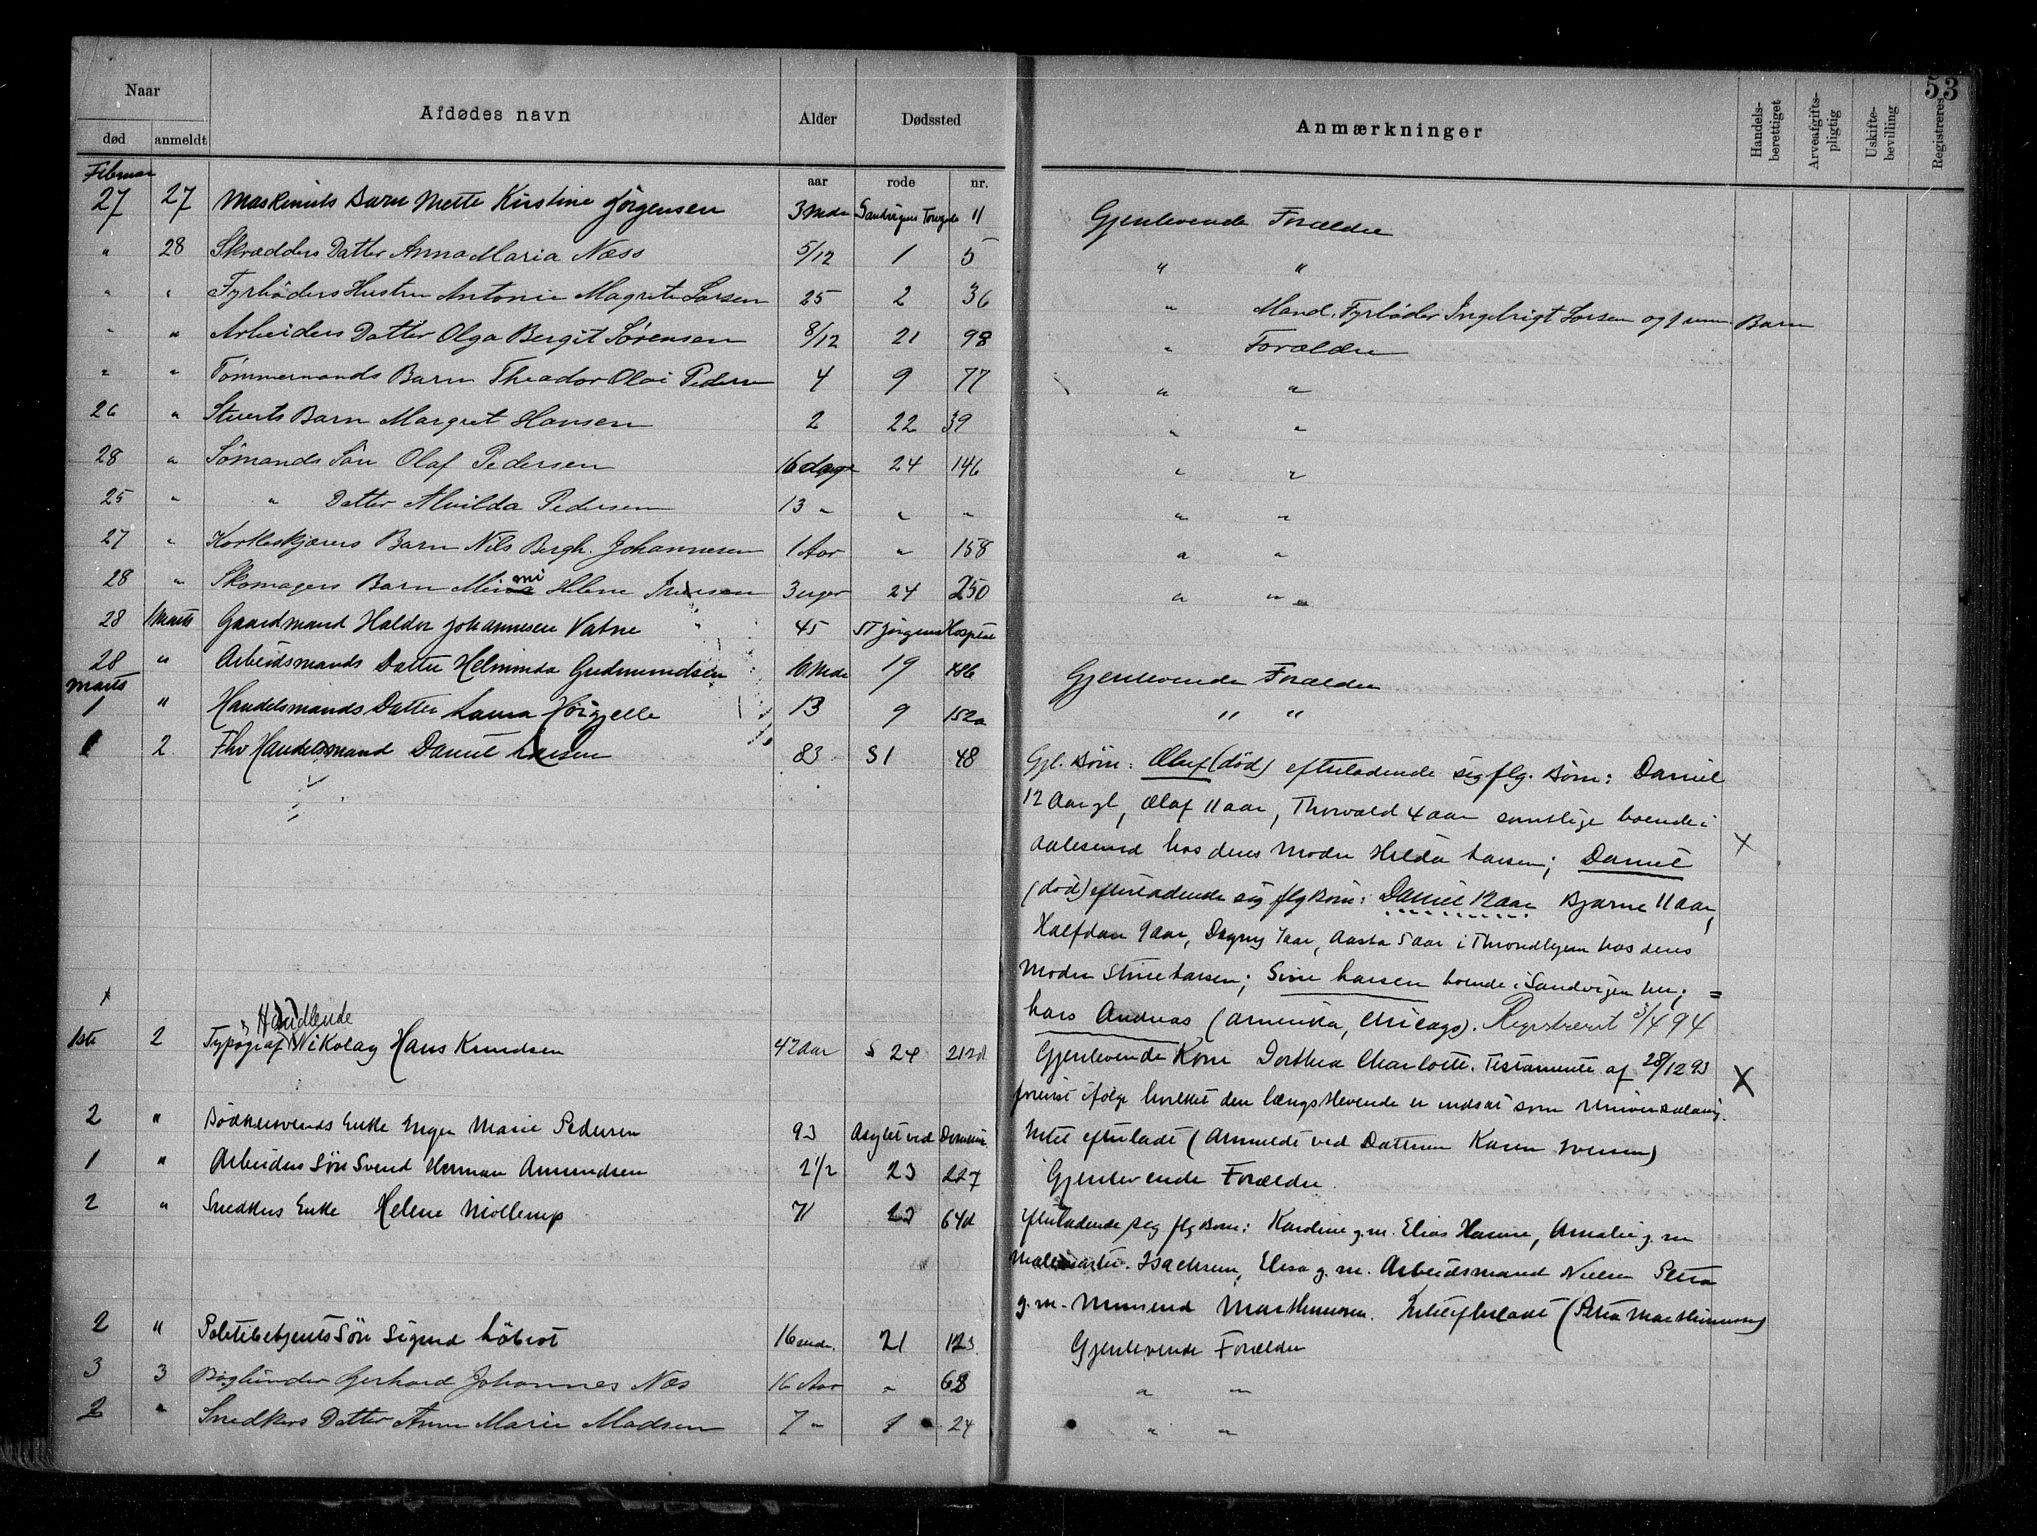 53
Naar
Afdødes navn
Alder
Dødssted
Anmærkninger
Handels-berettiget
Arveafgifts-pligtig
Uskifte-bevilling
Registreres
død
anmeldt
aar
rode
nr.
Februar
27 27 Maskinists Barn Mette Kirstine Jörgensen 3 Mdr Sandvigens Torvgade 11 Gjenlevende Forældre
" 28 Skrædders Datter Anna Maria Næss 5/12 1 5 " "
" " Fyrbøders Hustru Antonie Magrete Larsen 25 2 36 " Mand, Fyrbøder Ingebrigt Larsen og 1 Barn
" " Arbeiders Datter Olga Bergit Sörensen 8/12 21 98 " Forældre
" " Tömmermands Barn Theodor Olai Pedersen 4 9 77 " "
26 " Stuerts Barn Margret Hansen 2 22 39 " "
28 " Sömands Sön Olaf Pedersen 16 dage 24 146 " "
25 " " Datter Alvilda Pedersen 13 " " " " "
27 " Korkeskjærers Barn Nils Bergh. Johannesen 1 Aar " 158 " "
28 " Skomagers Barn Mimi Helene 3 uger 24 250 " "
28 1 Marts Gaardmand Haldor Johannesen Vatne 45 St Jørgens Hospital
28 " Arbeidsmands Datter Helminda Gudmundsen 10 Mdr 19 Gjenlevende Forældre
Marts
1 " Handelsmands Datter Laura 13 9 152a " "
1 2 Fhv Handelsmand Daniel Larsen 83 S 1 48 Gjl. Børn: Oluf (död) efterladende sig flg. Børn: Daniel
12 Aar gl, Olaf 11 aar, Thorvald 4 aar samtlige boende i
Aalesund hos deres Moder Hilda Larsen; Daniel
(död) efterladende sig flg Børn: Daniel 12 aar Bjarne 11 aar,
Halfdan 9 aar, Dagny 7 aar, Aasta 5 aar i Throndhjem hos deres
Moder Stine Larsen; Sine Larsen boende i Sandvigen her; =
Lars Andreas (Amerika, Chicago). Registreret 3/4 94
" Handlende
1ste 2 Typograf Nikolay Hans Knudsen 47 aar S 24 212d Gjenlevende Kone Dorthea Charlotte. Testamente af 28/12 93
ifølge hvilket den længstlevende er indsat som Universalarving.
2 " Bødkersvends Enke Inger Marie Pedersen 93 Asylet ved Domkirken Intet efterladt (Anmeldt ved Datteren Karen Iversen)
1 " Arbeiders Sön Svend Herman Amundsen 2 1/2 23 227 Gjenlevende Forældre.
2 " Snedkers Enke Helene Mollerup 71 23 64d Efterladende sig flg Børn: Karoline g.m. Elias Hanne, Amalie g.m
Malermester Isachsen, Elisa g.m. Arbeidsmand Nielsen Petra
g.m. Marthinussen. Intet efterladt (Petra Marthinussen)
2 " Politibetjents Sön Sigurd Löbrot 16 mdr. 21 123 Gjenlevende Forældre
3 3 Bogbinder Gerhard Johannes Næs 16 Aar " 68 " "
2 " Snedkers Datter Anne Marie Madsen 7 " 1 24 " "